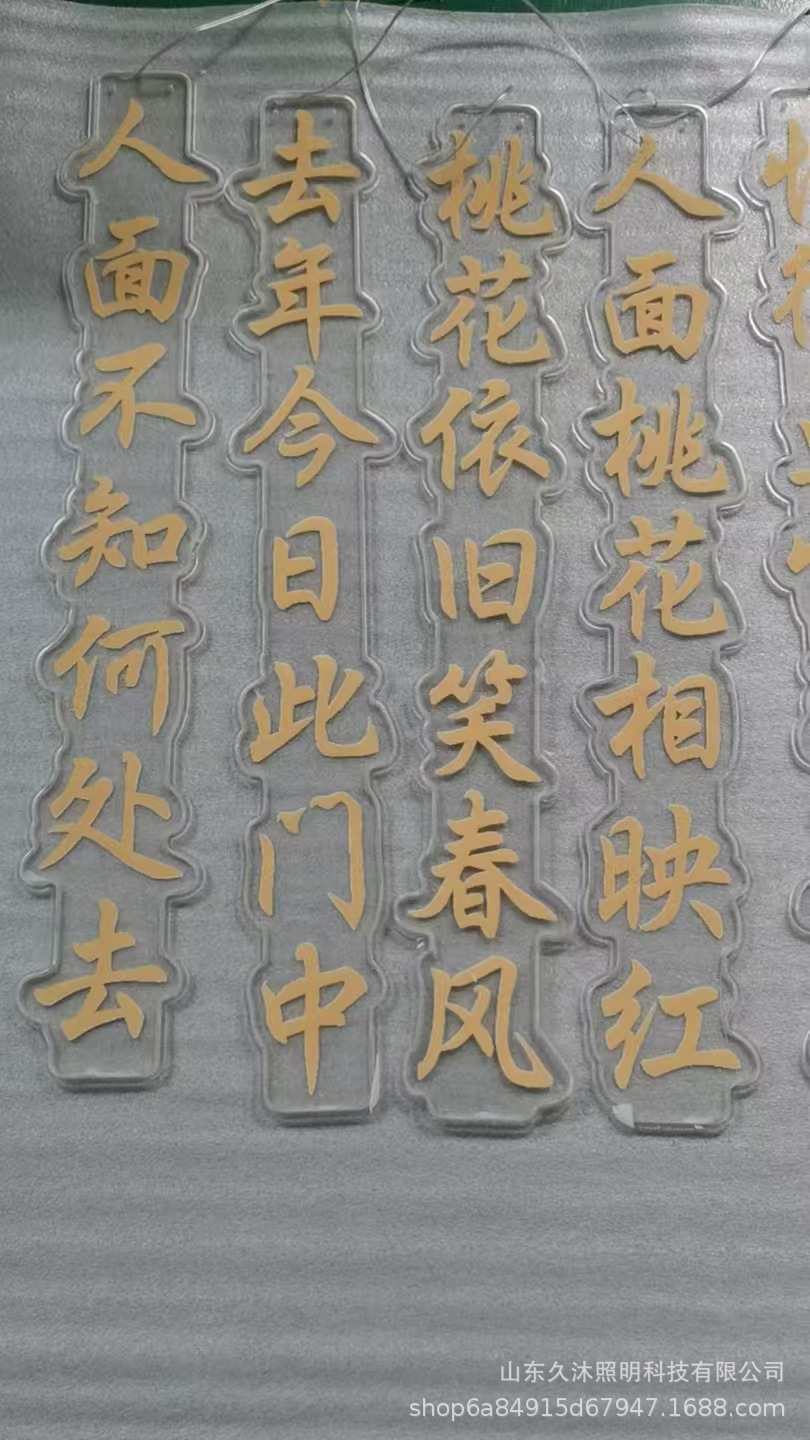 人面不知何处去
去年今日此门中
桃花依旧笑春风
人面桃花相映红
山东久沐照明科技有限公司
shop6a84915d67947.1688.com